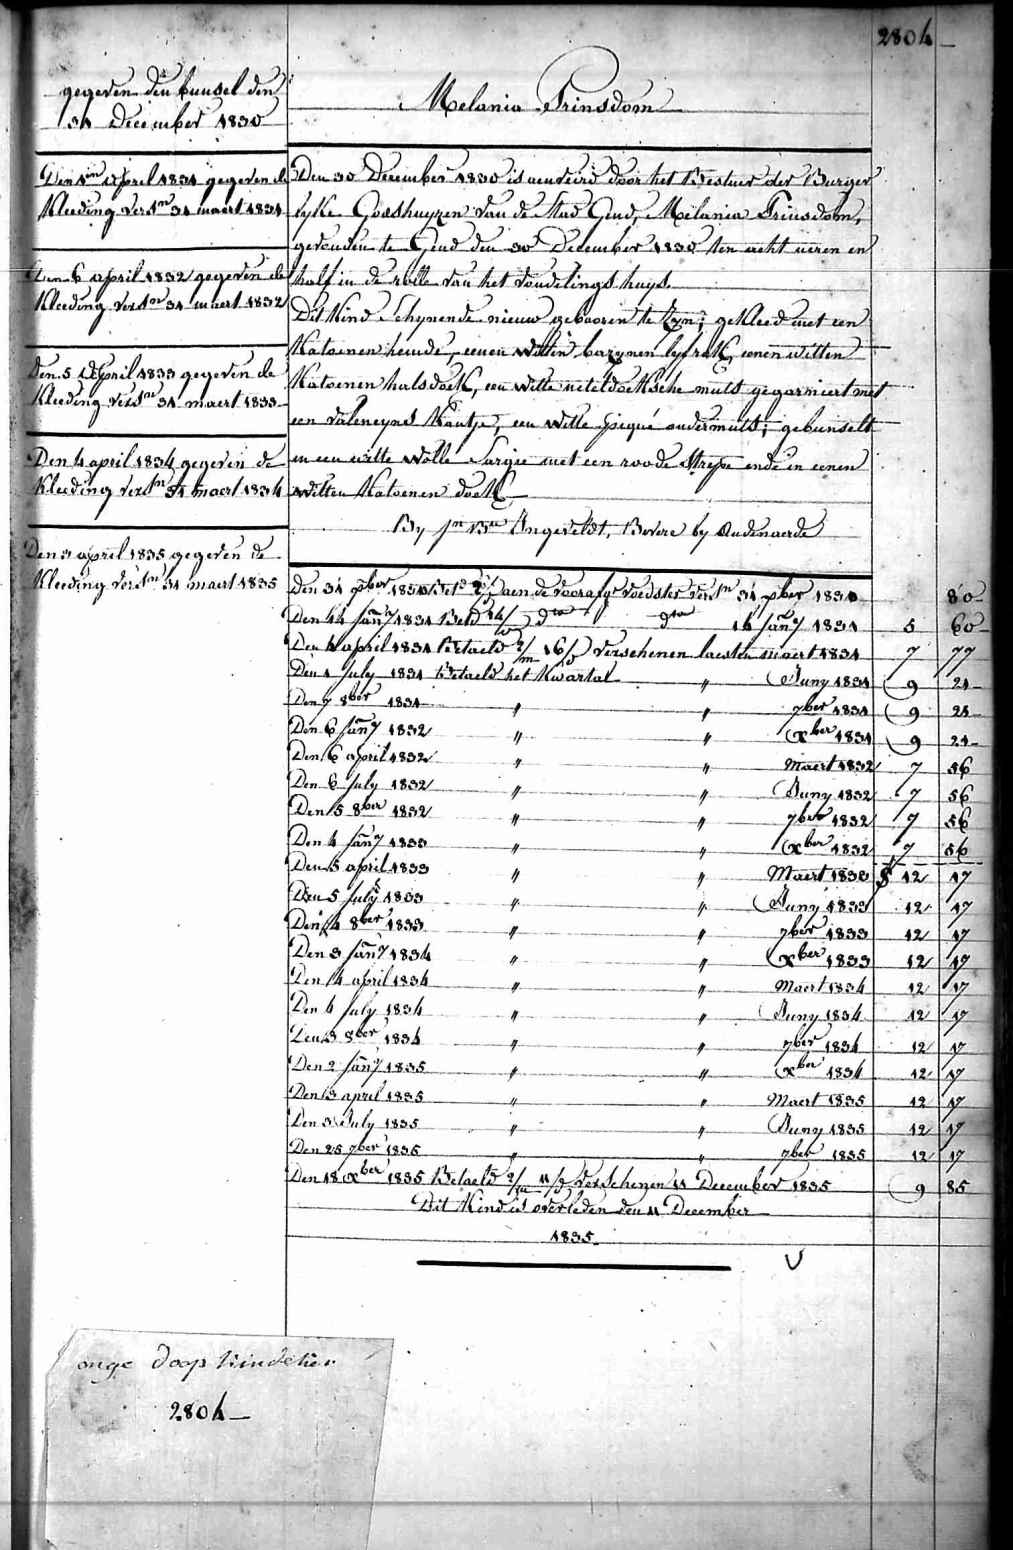 2804
gegeven den bunsel den
31 December 1830
Melania Prinsdom
Den 1en April 1831 gegeven de
Kleeding versn 31 maert 1831
Den 6 april 1832 gegeven de
Kleeding versn 31 maert 1832
Den 5 April 1833 gegeven de
Kleeding versn 31 maert 1833
Den 4 april 1834 gegeven de
Kleeding versn 31 maert 1834
Den 3 april 1835 gegeven de
Kleeding versn 31 maert 1835
Den 30 December 1830 is aenveird door het Bestuer der Burger
lyke Godshuyzen van de Stad Gend, Melania Prinsdom,
gevonden te Gend den 30 December 1830 ten acht ueren en
half in de rolle van het vondelings huys.
Dit Kind schynende nieuw gebooren te zyn; gekleed met een
Katoenen hemde, eenen witten bazynen lyfrok, eenen witten
Katoenen halsdoek, een witte neteldoeksche muts gegarniert met
een valencyns Kantje, een witte piqué ondermuts; gebunselt
in een witte wolle sargie met een roode strepe ende in eenen
witten Katoenen doek
By Ingeveldt, Bevere by Audenaerde
Den 31 xber 1830 Bet. aen de voorafge voedster versn 31 xber 1830 80
Den 14 Jany 1831 Betd 14/ dto dto 14 Jany 1831 5 60
Den 4 april 1831 Betaeld 2/m 16/ verschenen laesten maert 1831 7 77
Den 1 July 1831 Betaeld het Kwartal " Juny 1831 9 24
Den 7 8ber 1831 " " 7ber 1831 9 24
Den 6 Jany 1832 " " xber 1831 9 24
Den 6 april 1832 " " Maert 1832 7 56
Den 6 July 1832 " " Juny 1832 7 56
Den 5 8ber 1832 " " 7ber 1832 7 56
Den 4 Jany 1833 " " xber 1832 7 56
Den 5 april 1833 " " Maert 1833 12 17
Den 5 July 1833 " " Juny 1833 12 17
Den 4 8ber 1833 " " 7ber 1833 12 17
Den 3 Jany 1834 " " xber 1833 12 17
Den 4 april 1834 " " Maert 1834 12 17
Den 4 July 1834 " " Juny 1834 12 17
Den 3 8ber 1834 " " 7ber 1834 12 17
Den 2 Jany 1835 " " xber 1834 12 17
Den 3 april 1835 " " Maert 1835 12 17
Den 3 July 1835 " " Juny 1835 12 17
Den 25 7ber 1835 " " 7ber 1835 12 17
Den 18 xber 1835 Betaeld 2/m 11/ verschenen 11 December 1835 9 85
Dit Kind is overleden den 11 December
1835
onge doop kind
2804